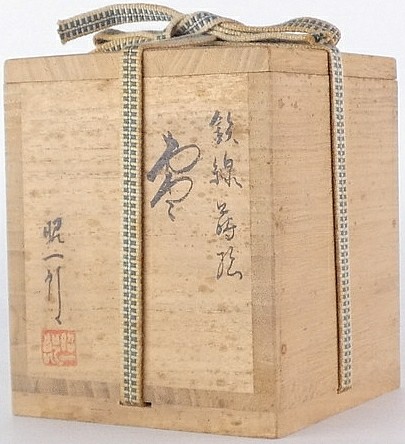 鉄線 蒔絵
棗
昭一作